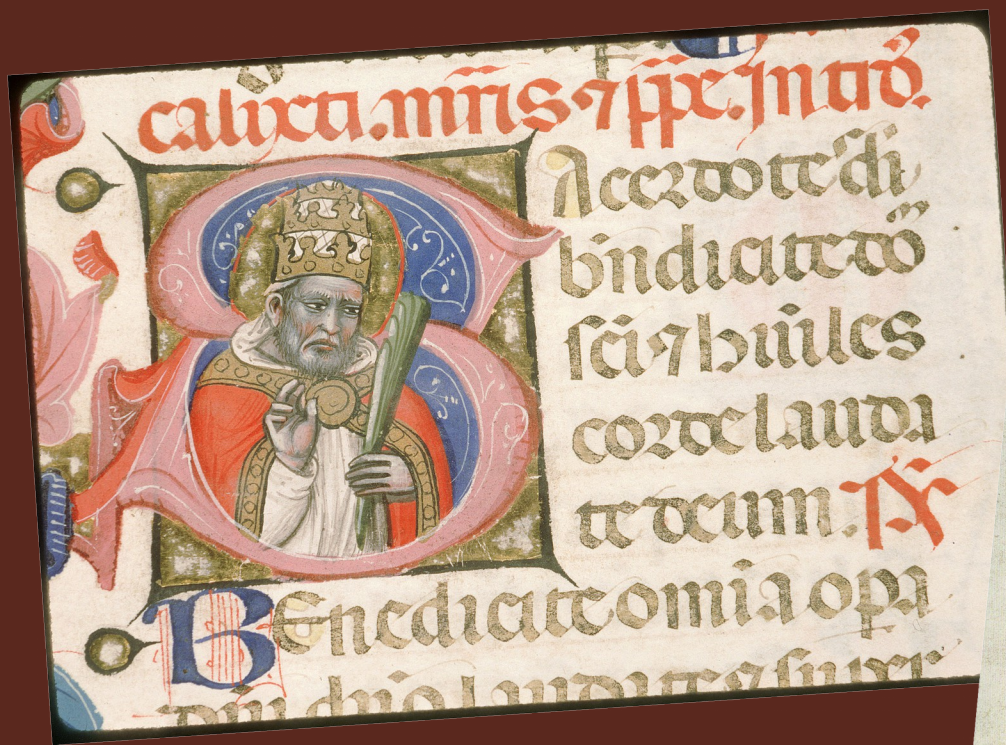 calixti. mr̄is ⁊ pp̄e. Jn trō.
SAcerdotes di
bn̄dicite dō
sc̄i ⁊ hūiles
corde lauda
te deum. ps̄
BEnedicite om̄ia opa
dn̄i dn̄o laudate ⁊ super